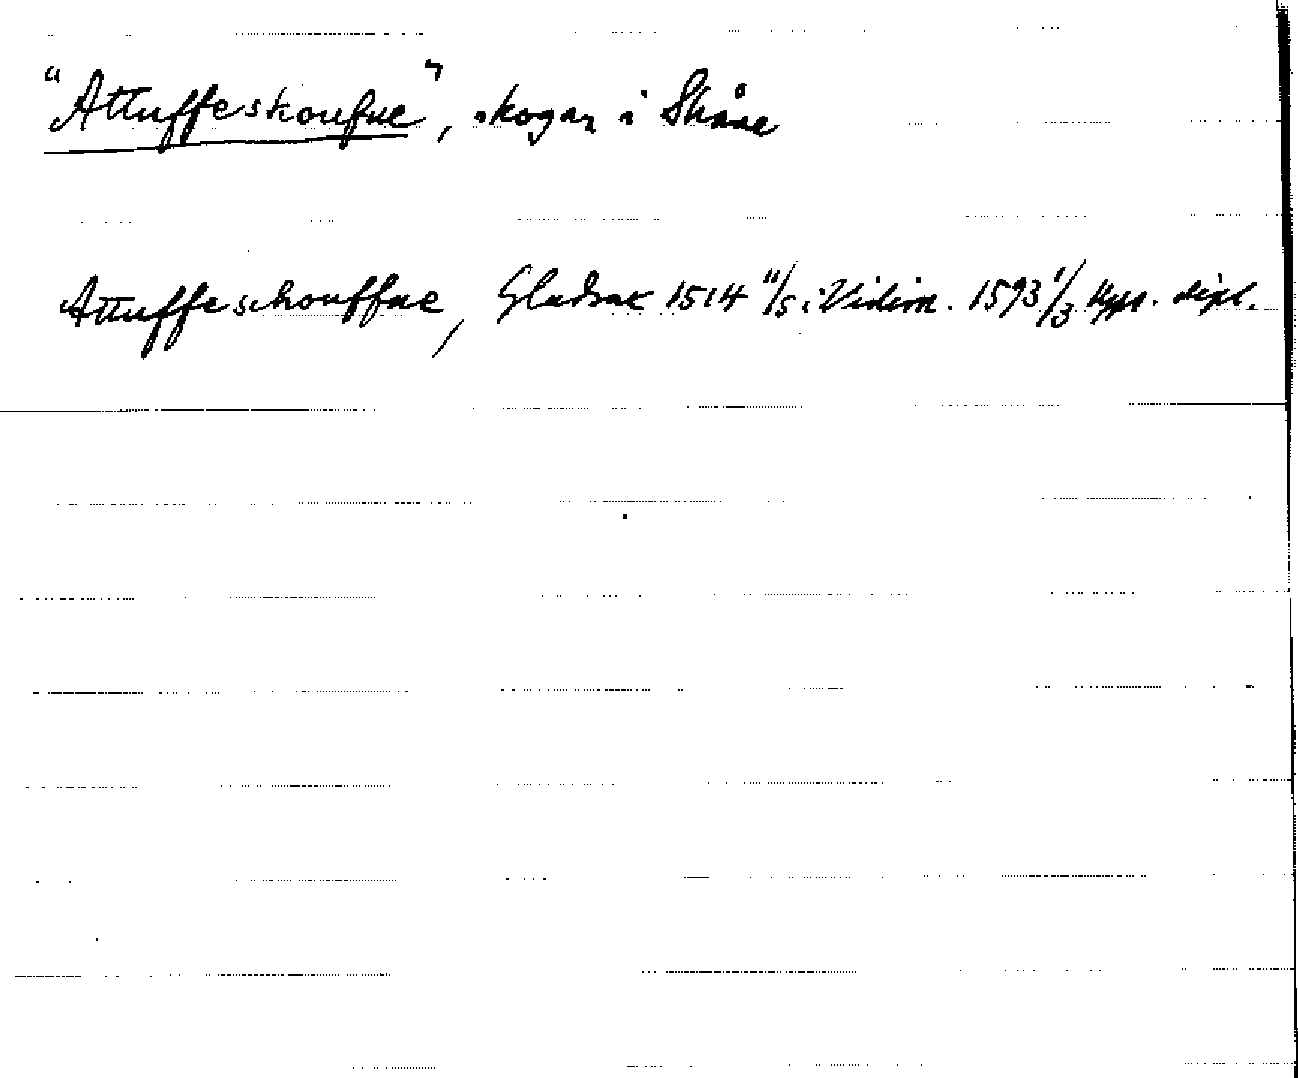 "Attuffeskoufue", skogar i Skåne
Attuffeschouffue, Gladsax 1514 11/5 i Vidim. 1593 1/3 dipl.